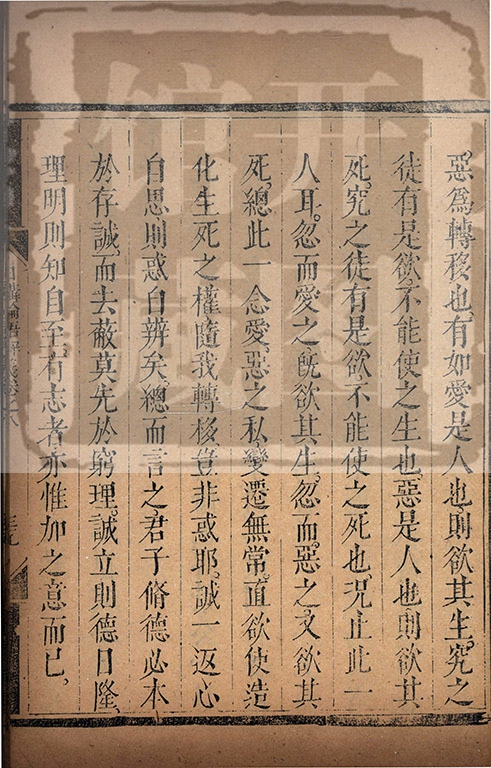 惡爲轉移也有如愛是人也則欲其生究之
徒有是欲不能使之生也惡是人也則欲其
死究之徒有是欲不能使之死也況止此一
人耳忽而愛之旣欲其生忽而惡之又欲其
死總此一念愛惡之私變遷無常直欲使造
化生死之權隨我轉移豈非惑耶誠一返心
自思則惑自辨矣總而言之君子脩德必本
於存誠而去蔽莫先於窮理誠立則德日隆
理明則知自至有志者亦惟加之意而已
日講
三九